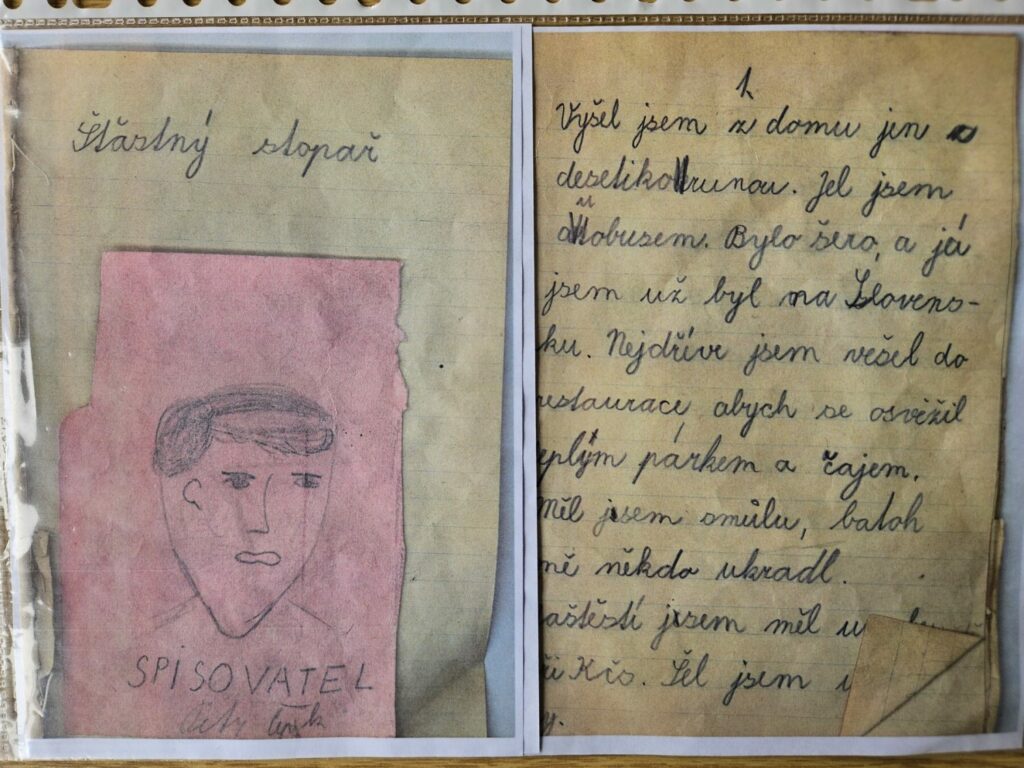 Šťastný stopař
SPISOVATEL
1.
Vyšel jsem z domu jen
desetikorunou. Jel jsem
autobusem. Bylo šero, a já
jsem už byl na Slovens-
ku. Nejdříve jsem vešel do
estaurace, abych se osvěžil
eplým párkem a čajem.
Měl jsem smůlu, batoh
mě někdo ukradl.
aštěstí jsem měl u
ři Kčs. Šel jsem
y.